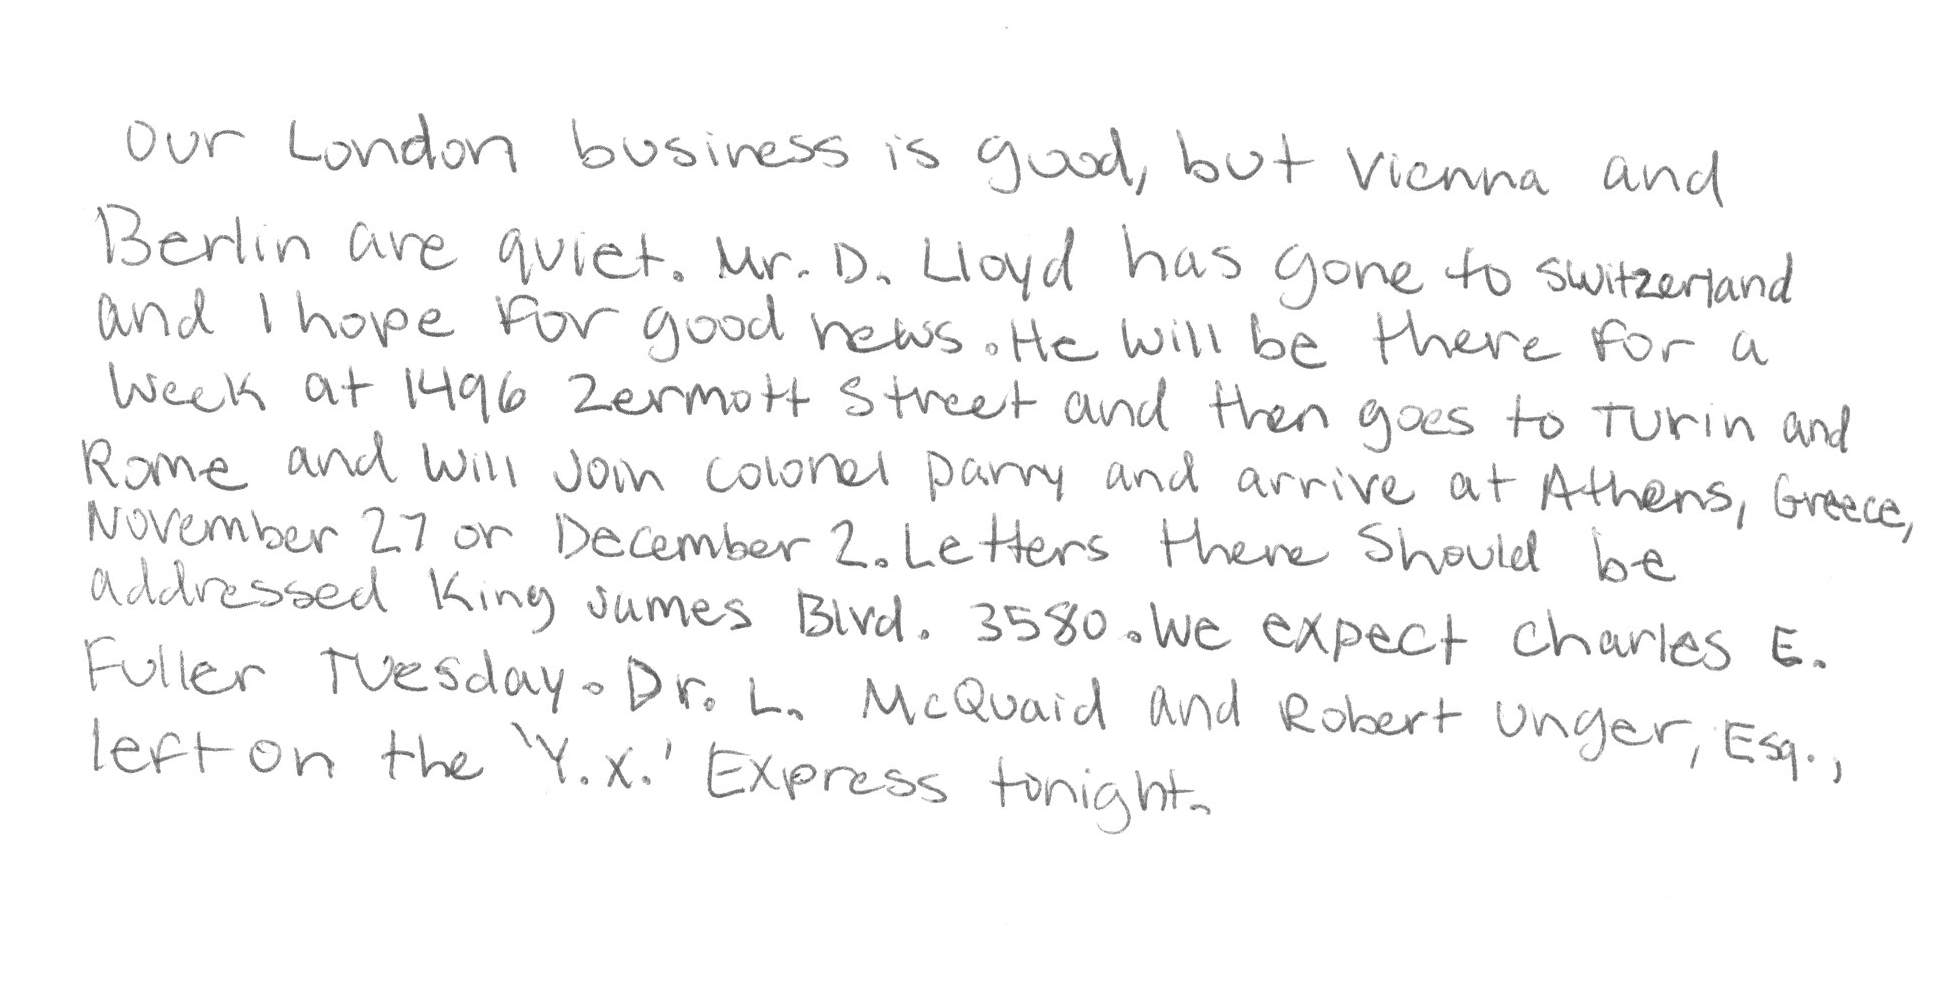 Our London business is good, but Vienna and
Berlin are quiet. Mr. D. Lloyd has gone to Switzerland
and I hope for good news. He will be there for a
week at 1496 Zermott Street and then goes to Turin and
Rome and will join Colonel Parry and arrive at Athens, Greece,
November 27 or December 2. Letters there should be
addressed King James Blvd. 3580. We expect Charles E.
Fuller Tuesday. Dr. L. McQuaid and Robert Unger, Esq.,
left on the 'Y.X.' Express tonight.